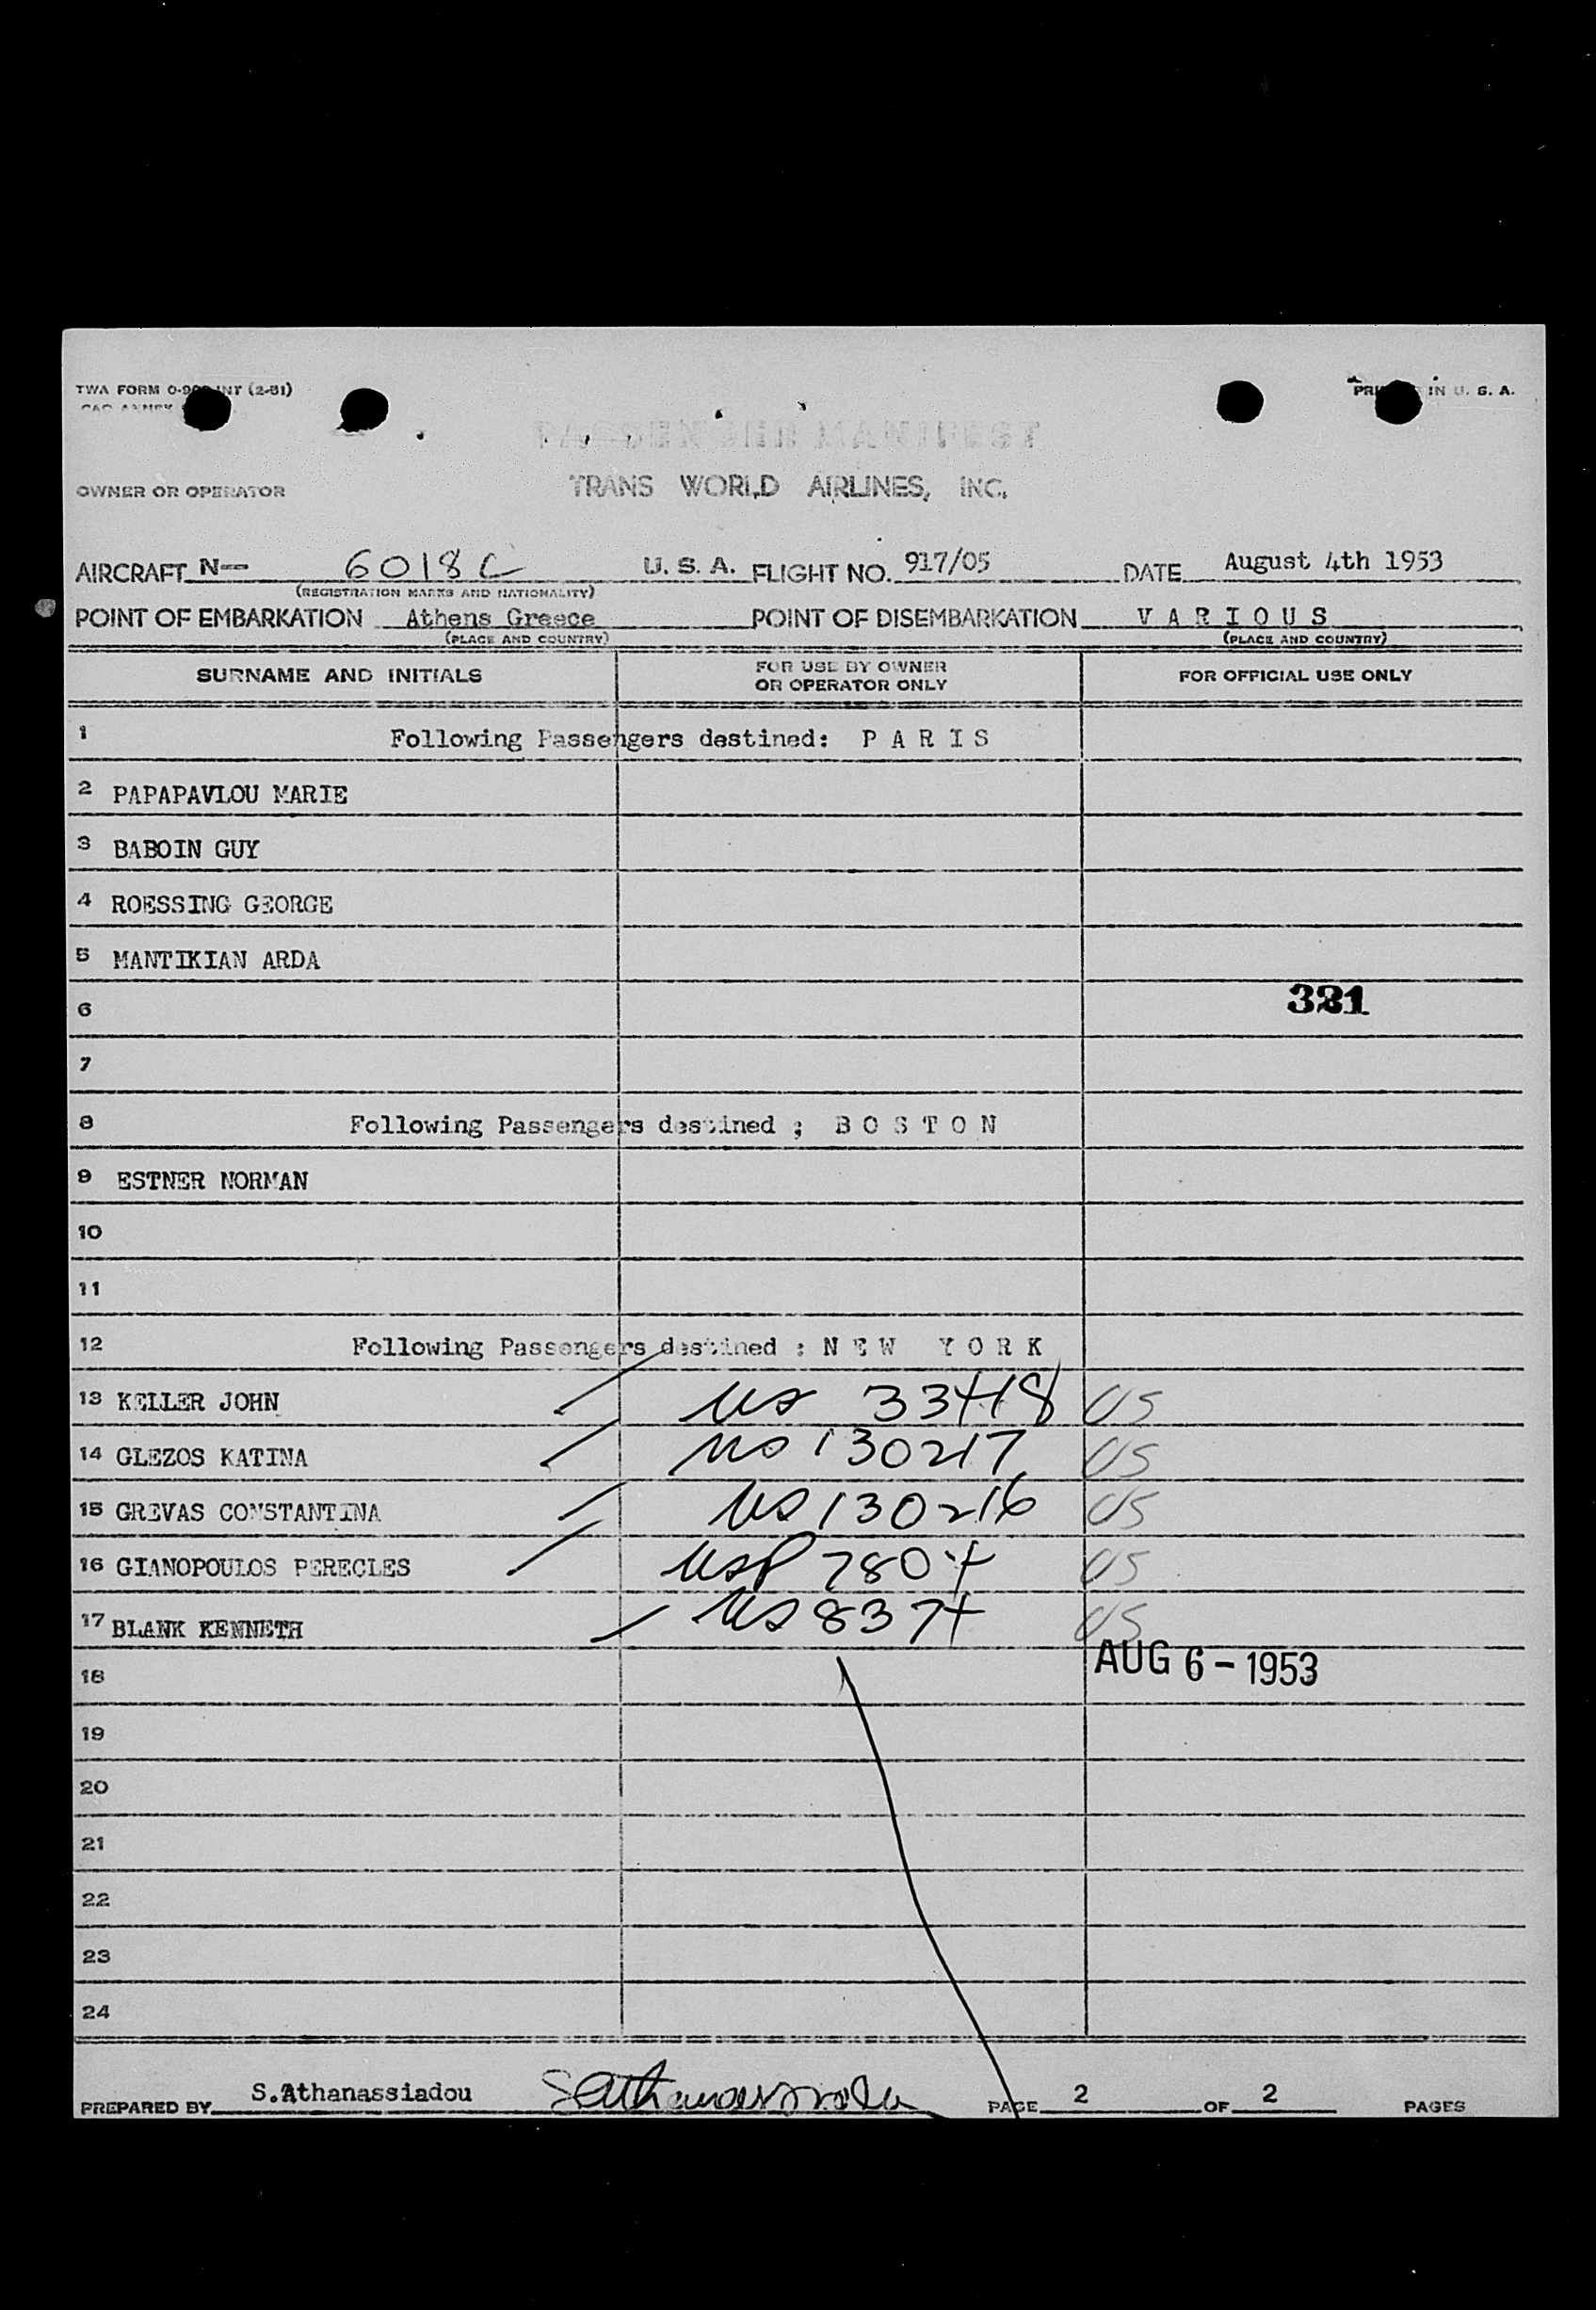 TWA FORM INT (2-51)
PRINTED IN U. S. A.
PASSENGER MANIFEST
OWNER OR OPERATOR TRANS WORLD AIRLINES, INC.
AIRCRAFT N-- 6018C U. S. A. FLIGHT NO. 917/05 DATE August 4th 1953
(REGISTRATION MARKS AND NATIONALITY)
POINT OF EMBARKATION Athens Greece POINT OF DISEMBARKATION V A R I O U S
(PLACE AND COUNTRY) (PLACE AND COUNTRY)
SURNAME AND INITIALS FOR USE BY OWNER OR OPERATOR ONLY FOR OFFICIAL USE ONLY
1 Following Passengers destined: P A R I S
2 PAPAPAVLOU MARIE
3 BABOIN GUY
4 ROESSING GEORGE
5 MANTIKIAN ARDA
6 321
7
8 Following Passengers destined ; B O S T O N
9 ESTNER NORMAN
10
11
12 Following Passengers destined : N E W Y O R K
13 KELLER JOHN US 33418 US
14 GLEZOS KATINA US 130217 US
15 GREVAS CONSTANTINA US 130216 US
16 GIANOPOULOS PERECLES USP 7804 US
17 BLANK KENNETH US 8374 US
18 AUG 6 - 1953
19
20
21
22
23
24
PREPARED BY S.Athanassiadou SAthanassiadou PAGE 2 OF 2 PAGES